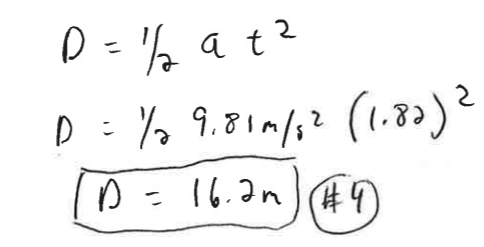 D = 1/2 a t²
D = 1/2 9.81m/s² (1.82)²
D = 16.2m #4